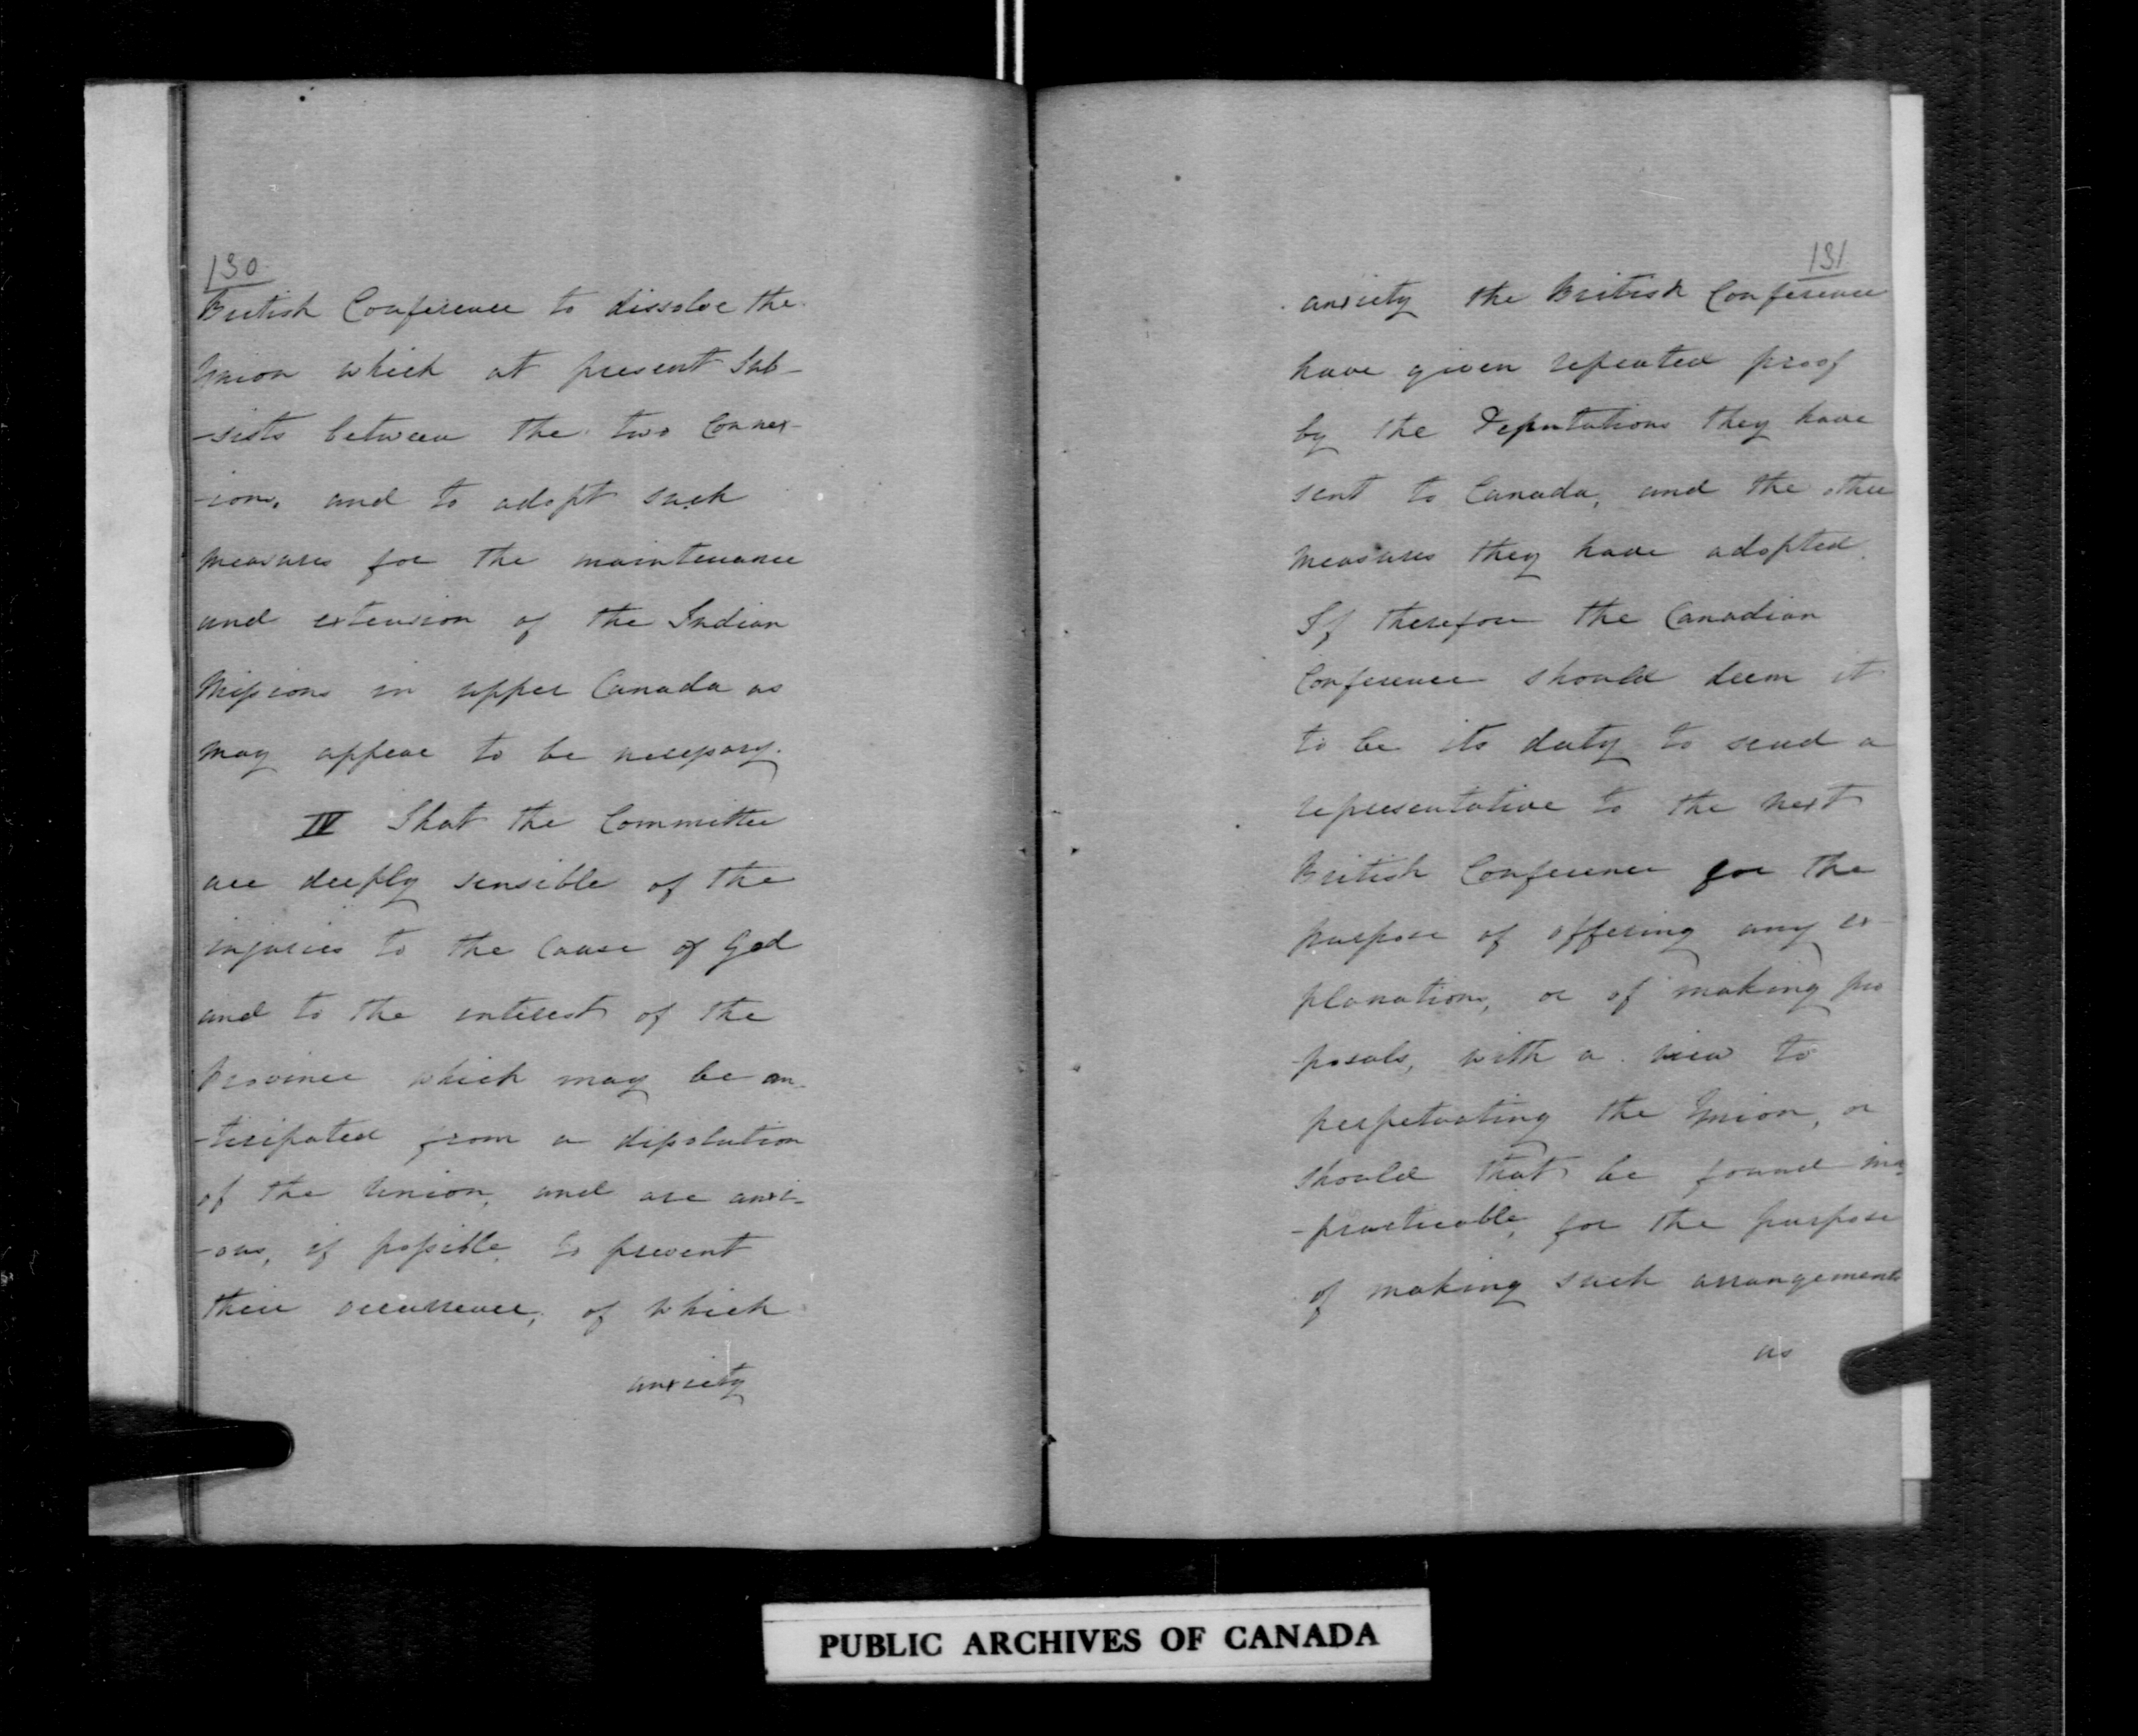 130
British Conference to dissolve the
Union which at present sub-
-sists between the two Connex-
-ions, and to adopt such
measures for the maintenance
and extension of the Indian
Missions in upper Canada as
may appear to be necessary.
IV That the Committee
are deeply sensible of the
injuries to the Cause of God
and to the interest of the
Province which may be an-
-ticipated from a dissolution
of the Union, and are anxi-
-ous, if possible, to prevent
their occurrence, of which
anxiety
131
anxiety the British Conference
have given repeated proof
by the Deputations they have
sent to Canada, and the other
measures they have adopted.
If therefore the Canadian
Conference should deem it
to be its duty to send a
representative to the next
British Conference for the
purpose of offering any ex-
planations, or of making pro
-posals, with a view to
perpetuating the Union, or
should that be found im-
-practicable, for the purpose
of making such arrangements
as
PUBLIC ARCHIVES OF CANADA